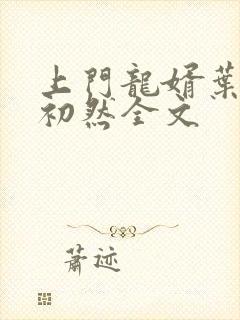 上門龍婿葉
初然全文
蕭迹